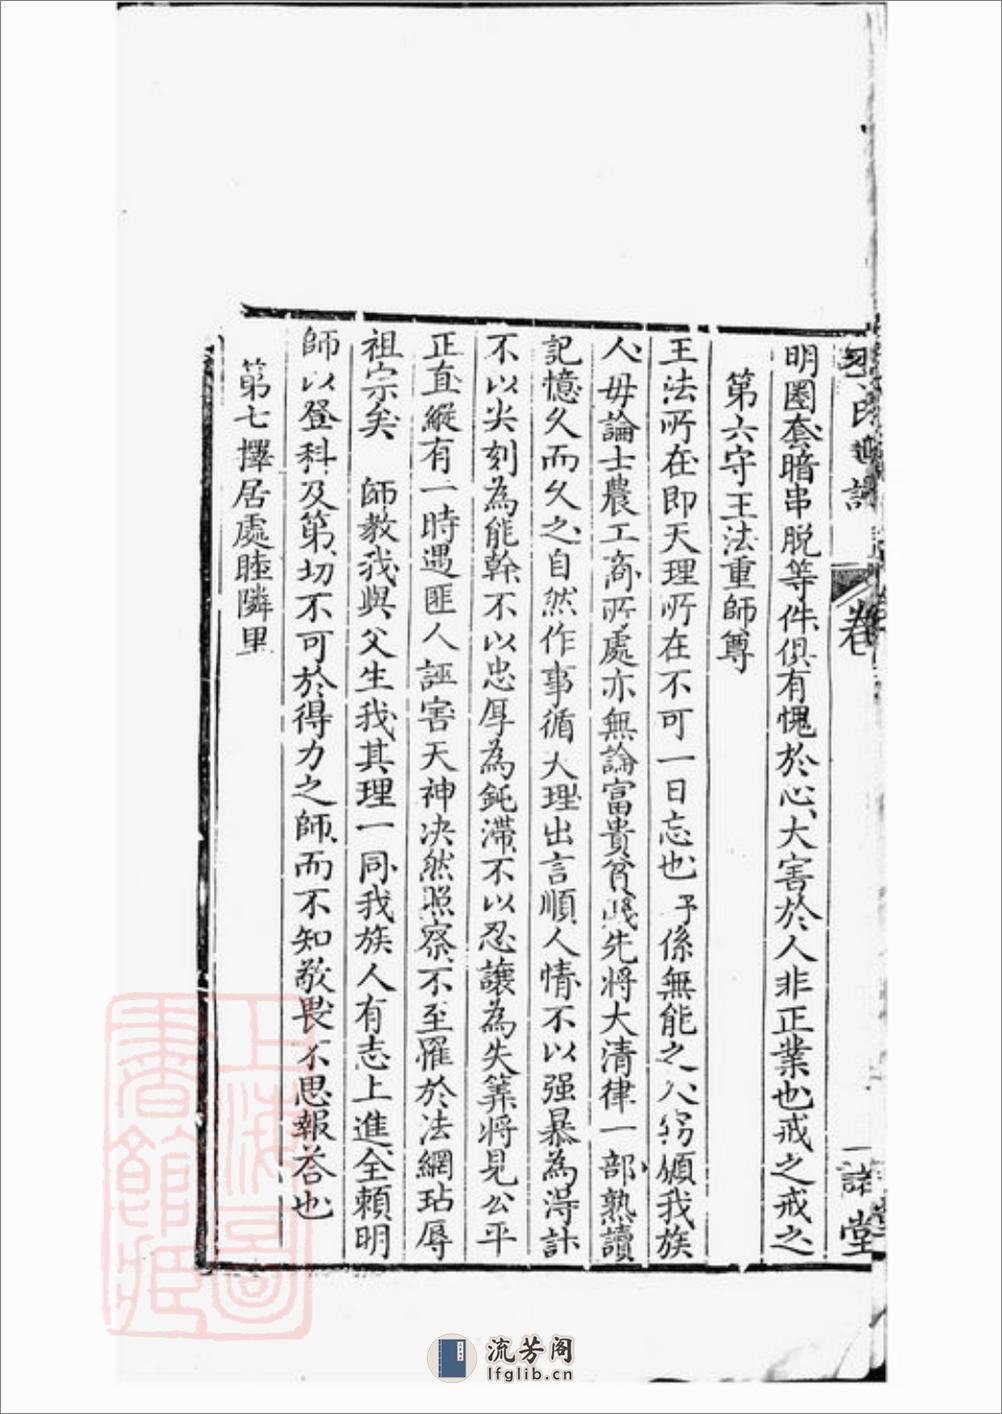 氏 譜 卷 一諾堂
明圈套暗串脱等件俱有愧於心大害於人非正業也戒之戒之
第六守王法重師尊
王法所在即天理所在不可一日忘也予係無能之人窃願我族
人毋論士農工商所處亦無論富貴貧賤先将大清律一部熟讀
記憶久而久之自然作事循天理出言順人情不以强暴為得計
不以尖刻為能幹不以忠厚為鈍滯不以忍讓為失筭将見公平
正直縱有一時遇匪人誣害天神决然照察不至罹於法網玷辱
祖宗矣 師教我與父生我其理一同我族人有志上進全賴明
師以登科及第切不可於得力之師而不知敬畏不思報荅也
第七擇居處睦隣里
上海圖書館藏
流芳阁
lfglib.cn